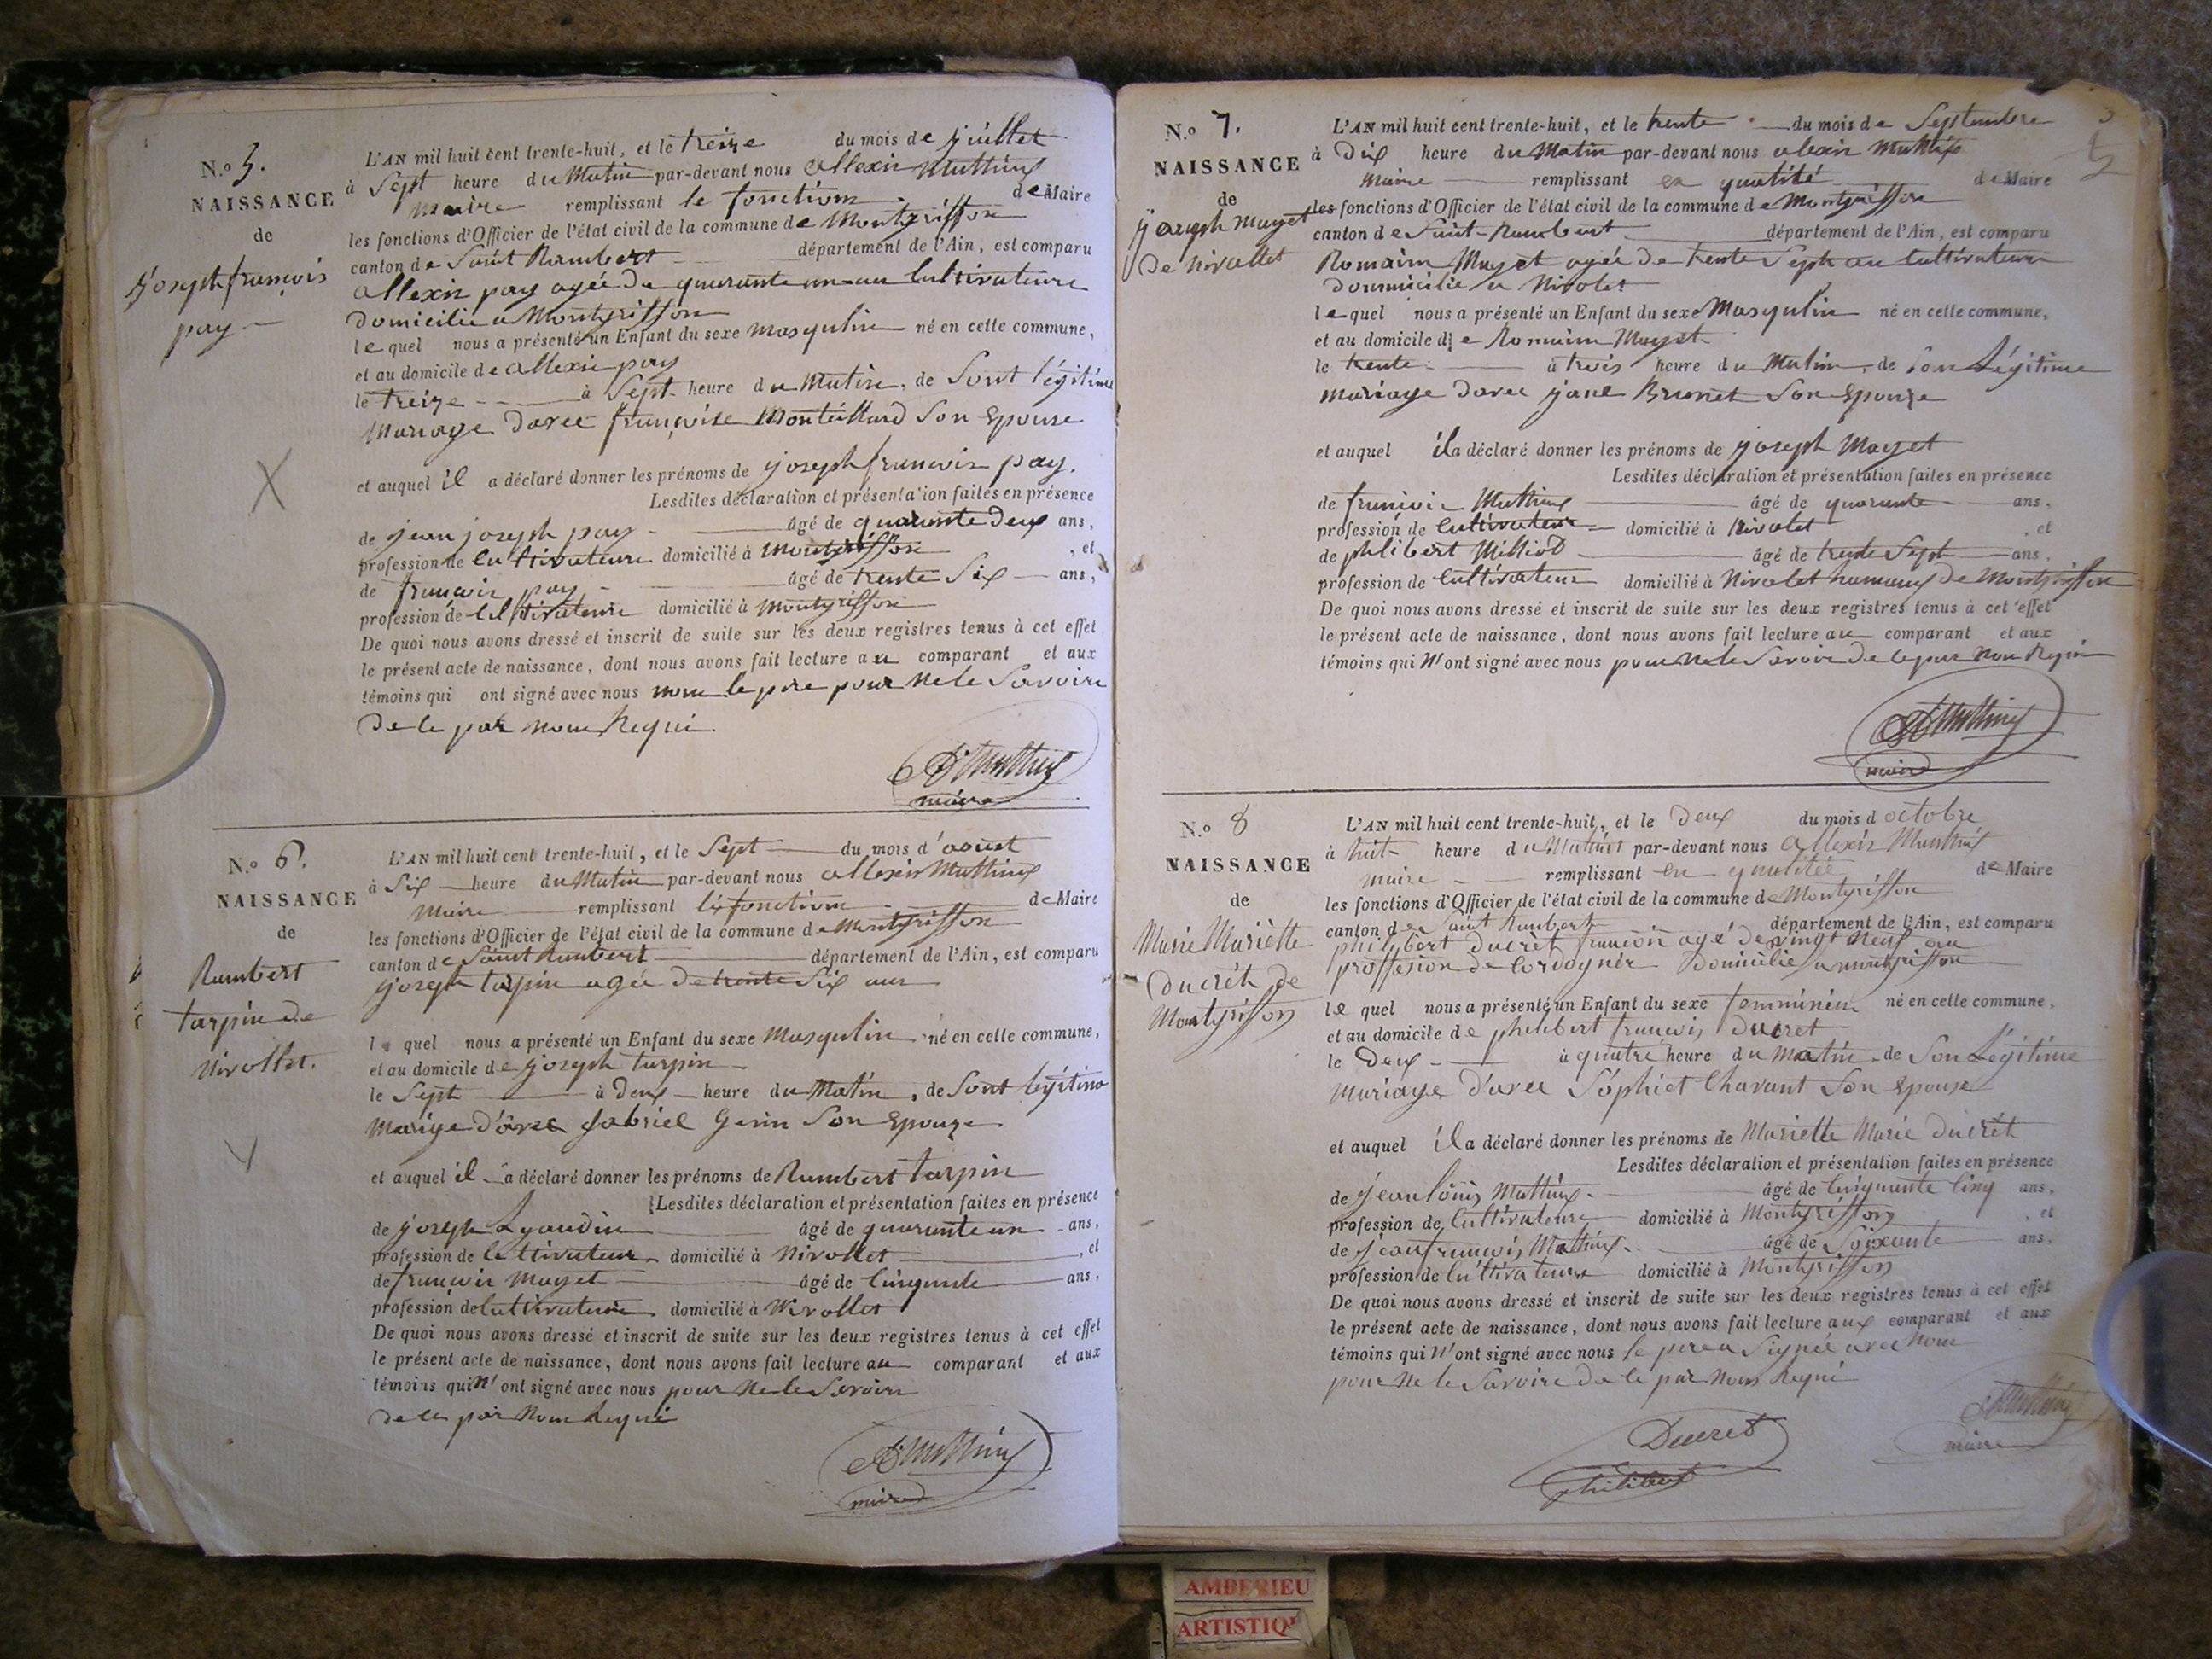 N.o 5.
NAISSANCE
de
Joseph françois
pay
L'AN mil huit cent trente-huit, et le treize du mois de juillet
à Sept heure du Matin par-devant nous allexis Mathieu
maire remplissant le fonction de Maire
les fonctions d'Officier de l'état civil de la commune de Montgriffon
canton de Saint Rambert département de l'Ain, est comparu
allexis pay agée de quarante un an Cultivateure
domicilie a Montgriffon
le quel nous a présenté un Enfant du sexe masqulin né en cette commune,
et au domicile de allexis pay
le treize à Sept heure du Matin, de Sont légitime
Mariage davec françoise Montillard Son Epouse
et auquel il a déclaré donner les prénoms de joseph francois pay.
Lesdites déclaration et présentation faites en présence
de jean joseph pay âgé de quarante deux ans,
profession de Cultivateure domicilié à Montgriffon, et
de françois pay âgé de trente Six ans,
profession de Cultivateure domicilié à Montgriffon
De quoi nous avons dressé et inscrit de suite sur les deux registres tenus à cet effet
le présent acte de naissance, dont nous avons fait lecture au comparant et aux
témoins qui ont signé avec nous nom le pere pour Ne le Savoire
De le par nous Requi
Mathieu
maire
N.o 6.
NAISSANCE
de
Rambert
tarpin de
Nirollet.
L'AN mil huit cent trente-huit, et le Sept du mois d'aoust
à Six heure du Matin par-devant nous allexis Mathieu
Maire remplissant les fonction de Maire
les fonctions d'Officier de l'état civil de la commune de Montgriffon
canton de Saint Rambert département de l'Ain, est comparu
joseph tarpin agée de trente Six ans
l quel nous a présenté un Enfant du sexe Masqulin né en cette commune,
et au domicile de joseph tarpin
le Sept à Deux heure du Matin, de Sont légitime
Marige d'avec gabriel Genin Son Epouze
et auquel il a déclaré donner les prénoms de Rambert tarpin
Lesdites déclaration et présentation faites en présence
de joseph Lyaudin âgé de quarante un ans,
profession de Cultivateur domicilié à Nirollet, et
de françois Mayet âgé de Cinquante ans,
profession de Cultivateure domicilié à Nirollet
De quoi nous avons dressé et inscrit de suite sur les deux registres tenus à cet effet
le présent acte de naissance, dont nous avons fait lecture au comparant et aux
témoins qui N'ont signé avec nous pour Ne le Savoire
De le par Nous Requi
Mathieu
maire
N.o 7.
NAISSANCE
de
joseph Mayet
De Nirollet
L'AN mil huit cent trente-huit, et le trente du mois de Septembre
à Dix heure du Matin par-devant nous alexis Mathieu
Maire remplissant en qualité de Maire
les fonctions d'Officier de l'état civil de la commune de Montgriffon
canton de Saint-Rambert département de l'Ain, est comparu
Romain Mayet agée de trente Sept an Cultivateure
Doumicilie a Nirolet
le quel nous a présenté un Enfant du sexe Masqulin né en cette commune,
et au domicile de Romain Mayet
le trente à trois heure du Matin, de Son Légitime
Mariage davec jane Brunet Son Epouze
et auquel il a déclaré donner les prénoms de joseph Mayet
Lesdites déclaration et présentation faites en présence
de françois Mathieu âgé de quarante ans,
profession de Cultivateure domicilié à Nirolet, et
de philibert Milliod âgé de trente Sept ans,
profession de Cultivateur domicilié à Nirolet hameaux de Montgriffon
De quoi nous avons dressé et inscrit de suite sur les deux registres tenus à cet effet
le présent acte de naissance, dont nous avons fait lecture au comparant et aux
témoins qui N'ont signé avec nous pour Ne le Savoire De le par Nou Requi
Mathieu
maire
N.o 8
NAISSANCE
de
Marie Mariette
Ducrét de
Montgriffon
L'AN mil huit cent trente-huit, et le Deux du mois d octobre
à huit heure du Matin par-devant nous allexis Mathieu
maire remplissant en qualitée de Maire
les fonctions d'Officier de l'état civil de la commune de Montgriffon
canton de Saint Rambert département de l'Ain, est comparu
philibert Ducret francois agé de vingt neuf an
proffesion de Cordognier Domicilie a montgriffon
le quel nous a présenté un Enfant du sexe femminien né en cette commune,
et au domicile de philibert francois Ducret
le Deux à quatre heure du Matin, de Son Légitime
Mariage d'avec Sophiet Chavant Son Epouse
et auquel il a déclaré donner les prénoms de Mariette Marie Ducrét
Lesdites déclaration et présentation faites en présence
de jean louis Mathieu âgé de Cinquente Cinq ans,
profession de Cultivateure domicilié à Montgriffon, et
de jean francois Mathieu âgé de Soixante ans,
profession de Cultivateure domicilié à Montgriffon
De quoi nous avons dressé et inscrit de suite sur les deux registres tenus à cet effet
le présent acte de naissance, dont nous avons fait lecture aux comparant et aux
témoins qui N'ont signé avec nous le pere a Signée avec Nous
pour Ne le Savoire De le par Nous Requi
Mathieu
maire
Ducret
philibert
AMBERIEU
ARTISTIQ